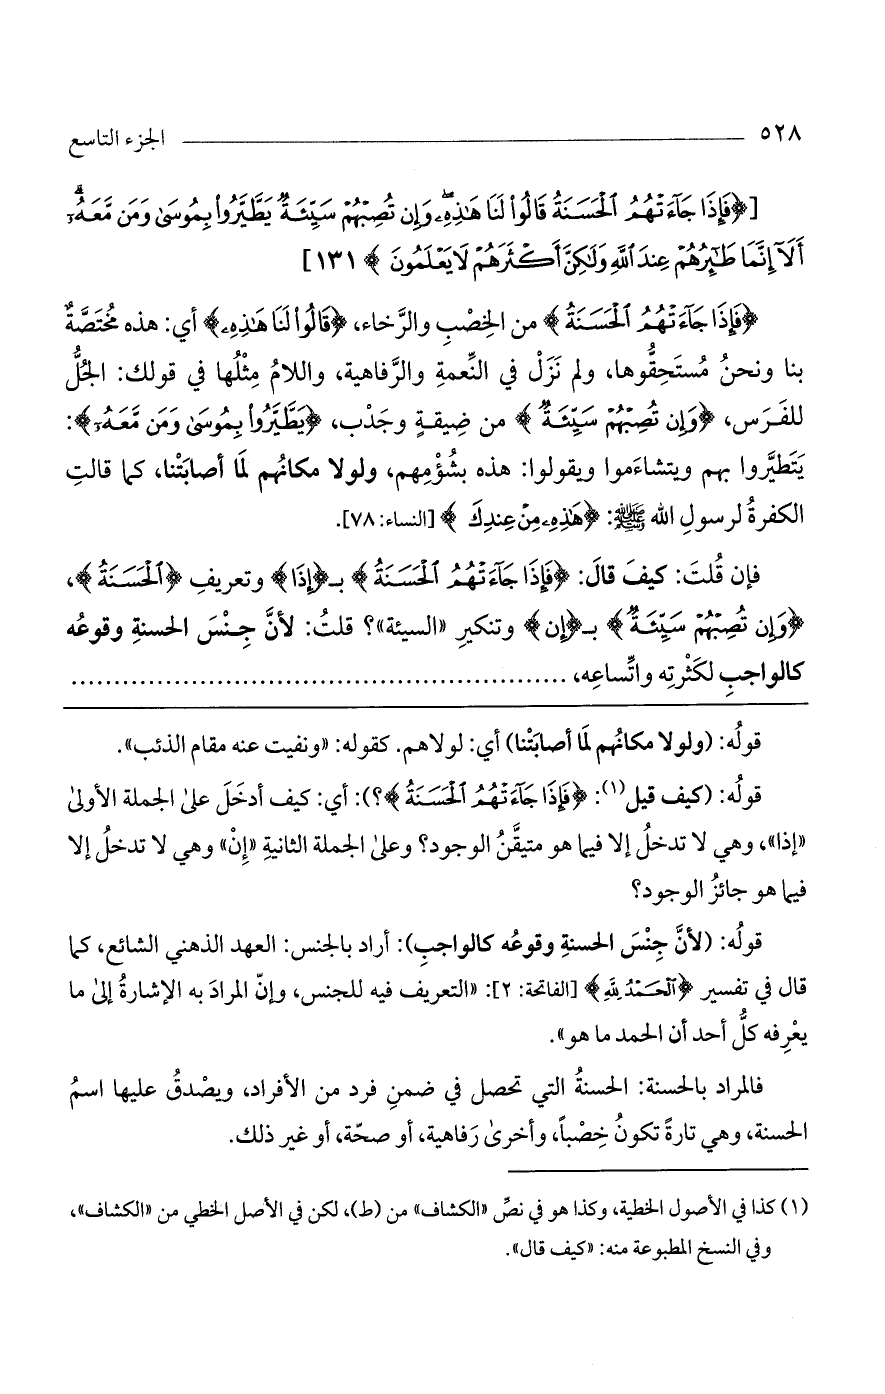 ٥٢٨ ــــــــــــــــــــ الجزء التاسع
[﴿فَإِذَا جَآءَتْهُمُ ٱلْحَسَنَةُ قَالُوا۟ لَنَا هَـٰذِهِۦۖ وَإِن تُصِبْهُمْ سَيِّئَةٌ يَطَّيَّرُوا۟ بِمُوسَىٰ وَمَن مَّعَهُۥٓۗ
أَلَآ إِنَّمَا طَـٰٓئِرُهُمْ عِندَ ٱللَّهِ وَلَـٰكِنَّ أَكْثَرَهُمْ لَا يَعْلَمُونَ﴾ ١٣١]
﴿فَإِذَا جَآءَتْهُمُ ٱلْحَسَنَةُ﴾ من الخِصْبِ والرَّخاء، ﴿قَالُوا۟ لَنَا هَـٰذِهِۦ﴾ أي: هذه مُختَصَّةٌ
بنا ونحنُ مُستَحِقُّوها، ولم نَزَلْ في النِّعمةِ والرَّفاهية، واللامُ مِثْلُها في قولك: الجُلُّ
للفَرَس، ﴿وَإِن تُصِبْهُمْ سَيِّئَةٌ﴾ من ضِيقةٍ وجَدْب، ﴿يَطَّيَّرُوا۟ بِمُوسَىٰ وَمَن مَّعَهُۥٓ﴾:
يَتَطيَّروا بهم ويتشاءَموا ويقولوا: هذه بشُؤْمِهم، ولولا مكانُهم لَمَا أصابَتْنا، كما قالتِ
الكفرةُ لرسولِ الله ﷺ: ﴿هَـٰذِهِۦ مِنْ عِندِكَ﴾ [النساء: ٧٨].
فإن قُلتَ: كيفَ قالَ: ﴿فَإِذَا جَآءَتْهُمُ ٱلْحَسَنَةُ﴾ بـ﴿إِذَا﴾ وتعريفِ ﴿ٱلْحَسَنَةُ﴾،
﴿وَإِن تُصِبْهُمْ سَيِّئَةٌ﴾ بـ﴿إِن﴾ وتنكيرِ «السيئة»؟ قلتُ: لأنَّ جِنْسَ الحسنةِ وقوعُه
كالواجبِ لكَثْرتِه واتِّساعِه، ..........................................................
قولُه: (ولولا مكانُهم لَمَا أصابَتْنا) أي: لولاهم. كقوله: «ونفيت عنه مقام الذئب».
قولُه: (كيف قيل(١): ﴿فَإِذَا جَآءَتْهُمُ ٱلْحَسَنَةُ﴾؟): أي: كيف أدخَلَ علىٰ الجملة الأولىٰ
«إذا»، وهي لا تدخلُ إلا فيما هو متيقَّنُ الوجود؟ وعلىٰ الجملة الثانيةِ «إنْ» وهي لا تدخلُ إلا
فيما هو جائزُ الوجود؟
قولُه: (لأنَّ جِنْسَ الحسنةِ وقوعُه كالواجبِ): أراد بالجنس: العهد الذهني الشائع، كما
قال في تفسير ﴿ٱلْحَمْدُ لِلَّهِ﴾ [الفاتحة: ٢]: «التعريف فيه للجنس، وإنّ المرادَ به الإشارةُ إلىٰ ما
يعْرِفه كلُّ أحد أن الحمد ما هو».
فالمراد بالحسنة: الحسنةُ التي تحصل في ضمنِ فرد من الأفراد، ويصْدقُ عليها اسمُ
الحسنة، وهي تارةً تكونُ خِصْباً، وأخرىٰ رَفاهية، أو صحّة، أو غير ذلك.
(١) كذا في الأصول الخطية، وكذا هو في نصِّ «الكشاف» من (ط)، لكن في الأصل الخطي من «الكشاف»،
وفي النسخ المطبوعة منه: «كيف قال».